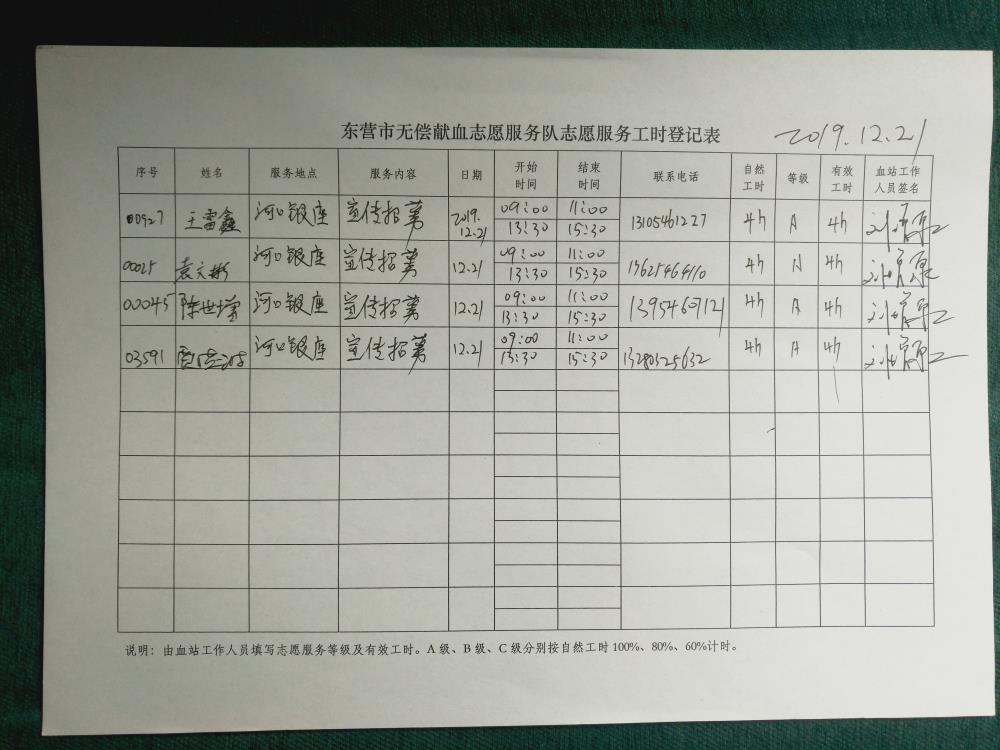 东营市无偿献血志愿服务队志愿服务工时登记表 2019.12.21
序号 姓名 服务地点 服务内容 日期 开始时间 结束时间 联系电话 自然工时 等级 有效工时 血站工作人员签名
00927 王雷鑫 河口银座 宣传招募 2019.12.21 09:00 11:00 13105461227 4h A 4h
13:30 15:30
0025 袁文彬 河口银座 宣传招募 12.21 09:00 11:00 4h A 4h
13:30 15:30
00045 陈世增 河口银座 宣传招募 12.21 09:00 11:00 13954607121 4h A 4h
13:30 15:30
03591 河口银座 宣传招募 12.21 09:00 11:00 13280325632 4h A 4h
13:30 15:30
说明：由血站工作人员填写志愿服务等级及有效工时。A 级、B 级、C 级分别按自然工时 100%、80%、60%计时。